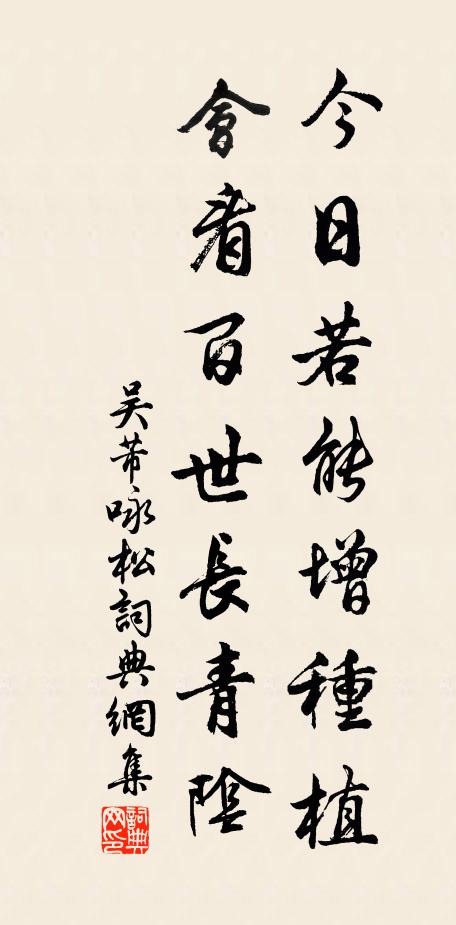 今日若能增種植
會看百世長青陰
吴芾咏松詞典網集
詞典网印